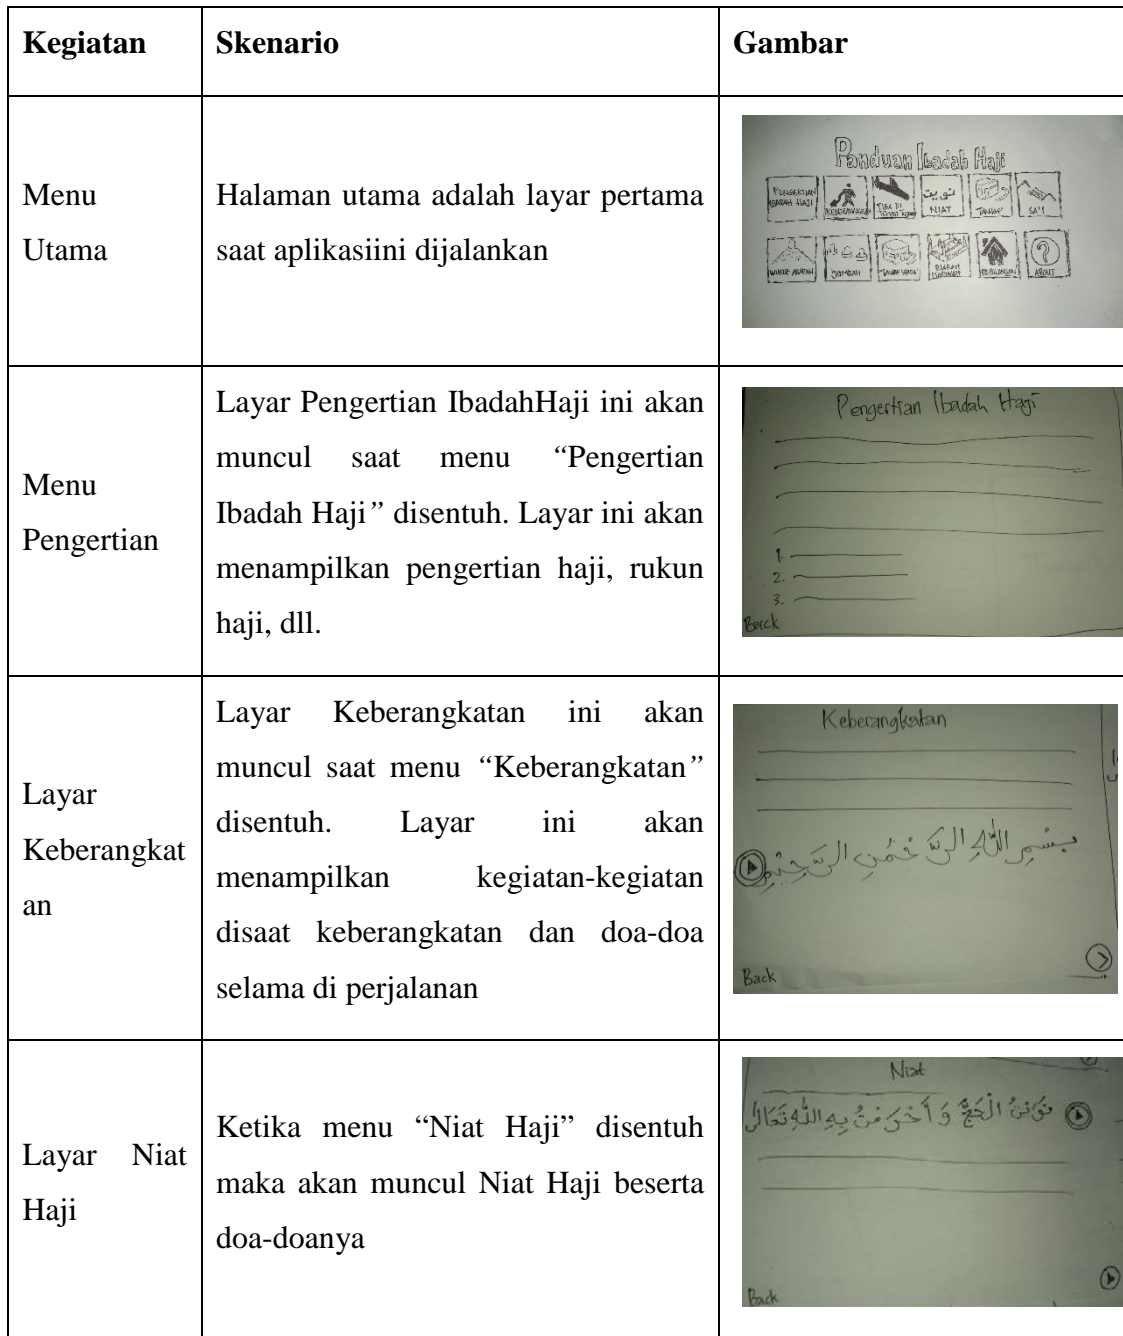 Kegiatan
Skenario
Gambar
Menu
Utama
Halaman utama adalah layar pertama
saat aplikasiini dijalankan
Panduan Ibadah Haji
PENGERTIAN
IBADAH HAJI
KEBERANGKATAN
TIBA DI
نويت
NIAT
SA'I
WUKUF ARAFAH
JUMRAH
KEPULANGAN
?
ABOUT
Menu
Pengertian
Layar Pengertian IbadahHaji ini akan
muncul saat menu “Pengertian
Ibadah Haji” disentuh. Layar ini akan
menampilkan pengertian haji, rukun
haji, dll.
Pengertian Ibadah Haji
1.
2.
3.
Back
Layar
Keberangkat
an
Layar Keberangkatan ini akan
muncul saat menu “Keberangkatan”
disentuh. Layar ini akan
menampilkan kegiatan-kegiatan
disaat keberangkatan dan doa-doa
selama di perjalanan
Keberangkatan
بِسْمِ اللَّهِ الرَّحْمَنِ الرَّحِيْمِ
Back
Layar Niat
Haji
Ketika menu “Niat Haji” disentuh
maka akan muncul Niat Haji beserta
doa-doanya
Niat
الْحَجَّ وَ أَحْرَمْتُ بِهِ اللَّهِ تَعَالَى
Back